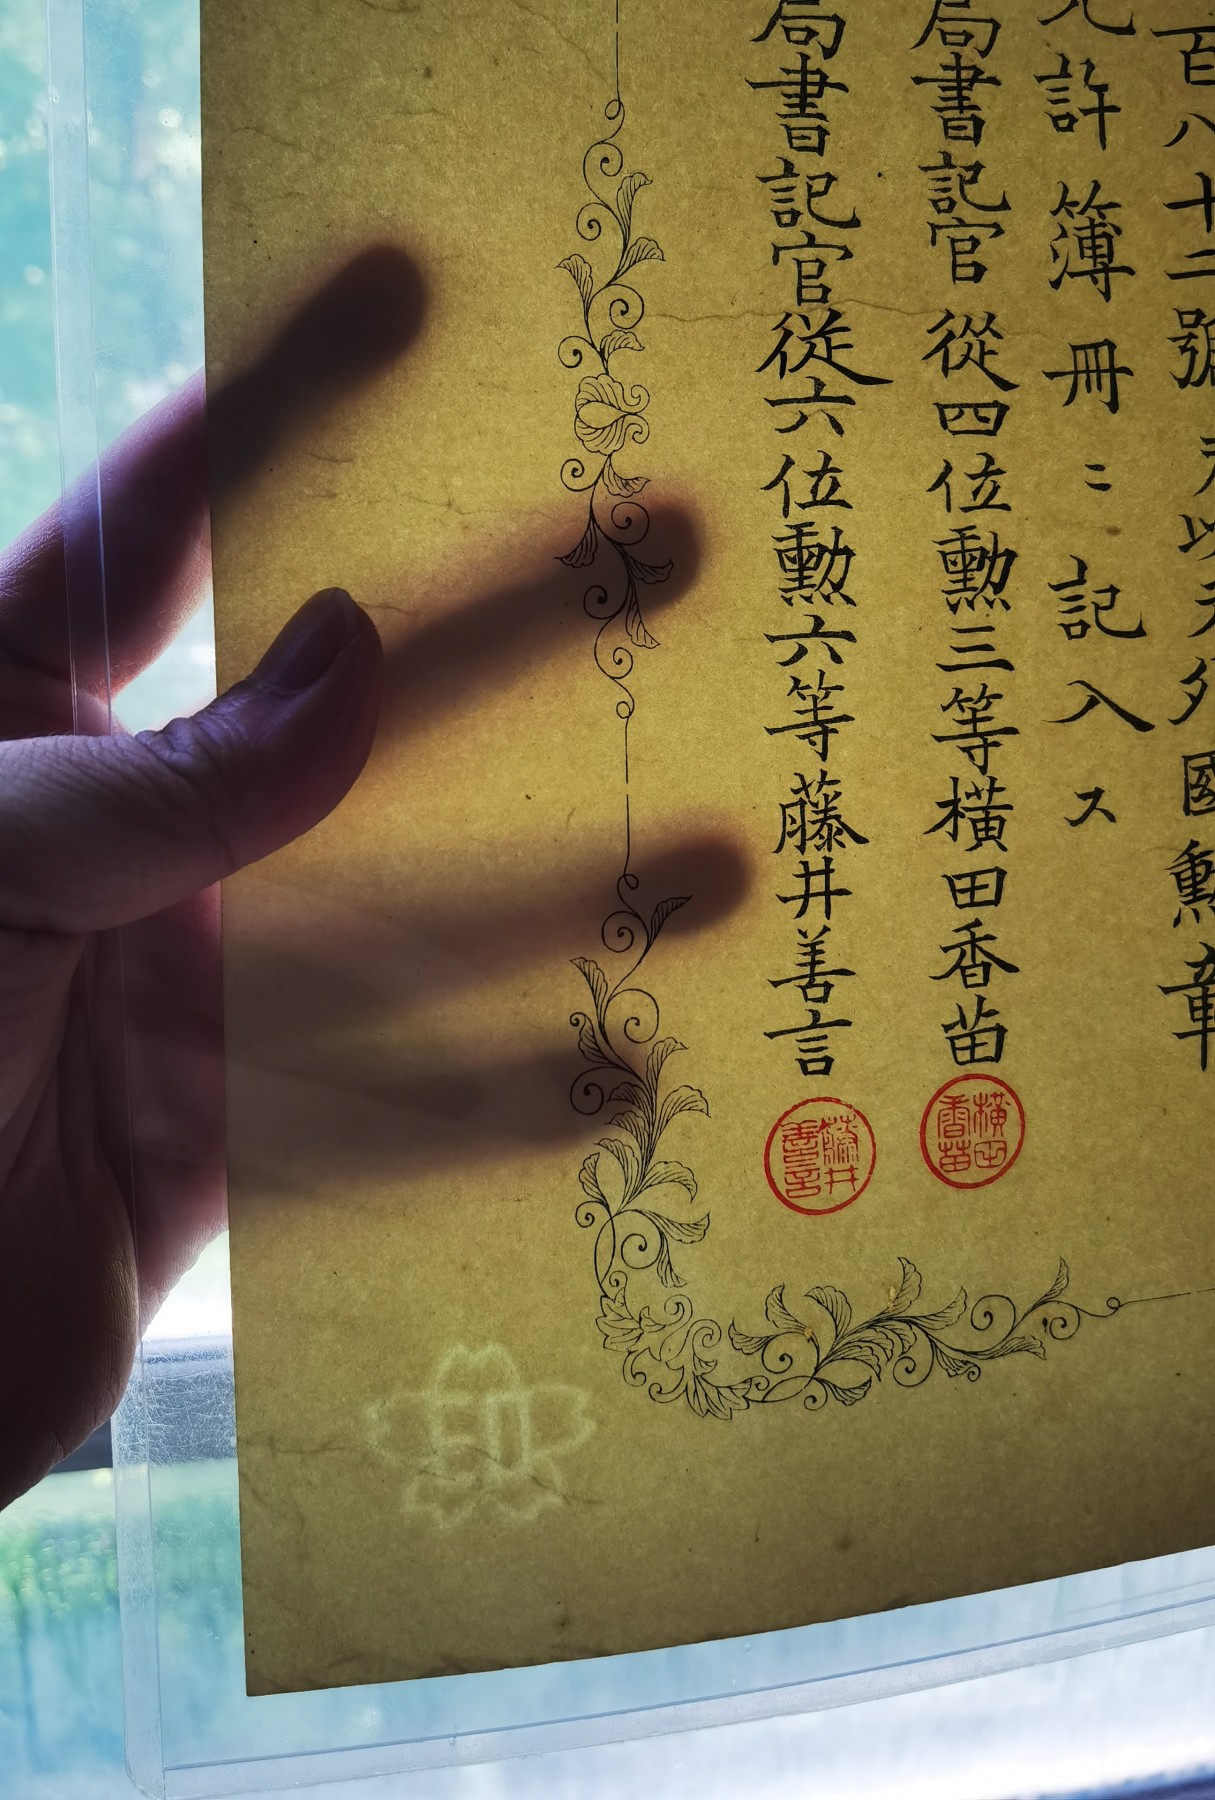 百八十二號ヲ以テ外國勳章
允許簿冊ニ記入ス
局書記官從四位勳三等横田香苗
横田香苗
局書記官從六位勳六等藤井善言
藤井善言
印